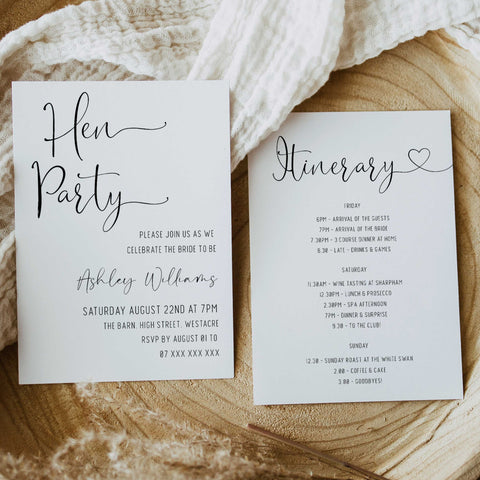 Hen
Party
PLEASE JOIN US AS WE
CELEBRATE THE BRIDE TO BE
Ashley Williams
SATURDAY AUGUST 22ND AT 7PM
THE BARN, HIGH STREET, WESTACRE
RSVP BY AUGUST 01 TO
07 XXX XXX XXX
Itinerary
FRIDAY
6PM - ARRIVAL OF THE GUESTS
7PM - ARRIVAL OF THE BRIDE
7.30PM - 3 COURSE DINNER AT HOME
8.30 - LATE - DRINKS & GAMES
SATURDAY
11.30AM - WINE TASTING AT SHARPHAM
12.30PM - LUNCH & PROSECCO
2.30PM - SPA AFTERNOON
7PM - DINNER & SURPRISE
9.30 - TO THE CLUB!
SUNDAY
12.30 - SUNDAY ROAST AT THE WHITE SWAN
2.00 - COFFEE & CAKE
3.00 - GOODBYES!